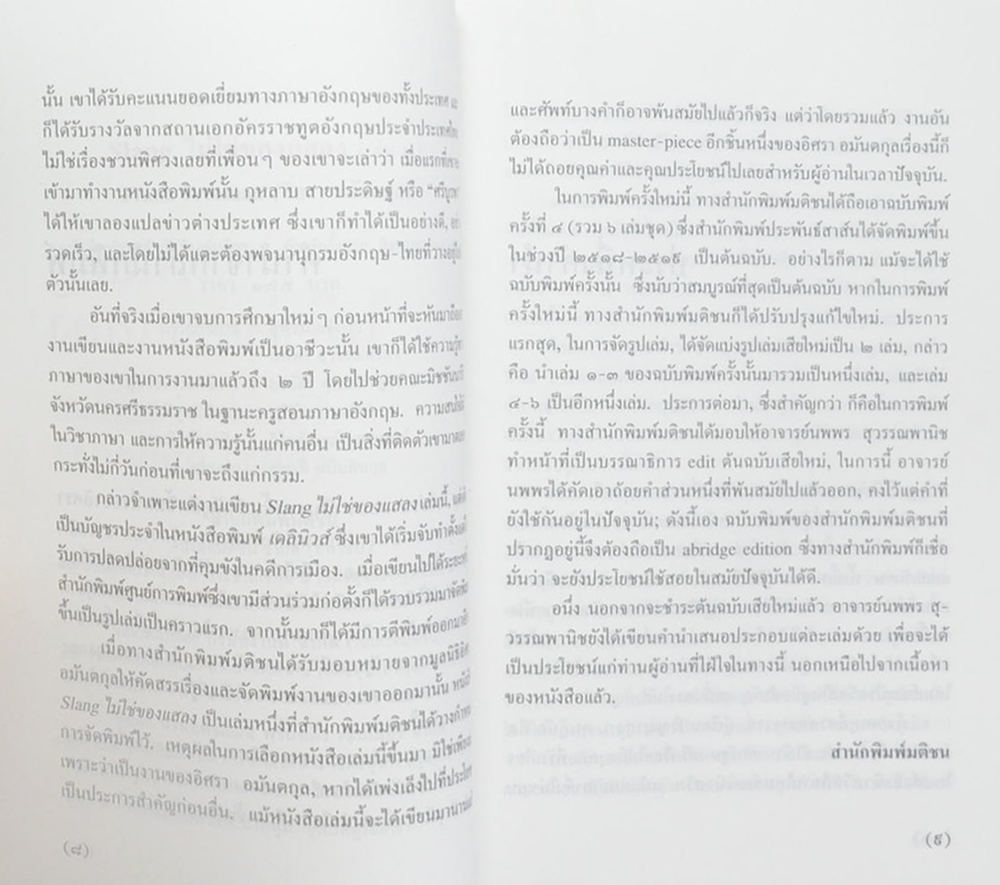 นั้น เขาได้รับคะแนนยอดเยี่ยมทางภาษาอังกฤษของทั้งประเทศ
ก็ได้รับรางวัลจากสถานเอกอัครราชทูตอังกฤษประจำประเทศไทย
ไม่ใช่เรื่องชวนพิศวงเลยที่เพื่อนๆ ของเขาจะเล่าว่า เมื่อแรกที่เขา
เข้ามาทำงานหนังสือพิมพ์นั้น กุหลาบ สายประดิษฐ์ หรือ “ศรีบูรพา”
ได้ให้เขาลองแปลข่าวต่างประเทศ ซึ่งเขาก็ทำได้เป็นอย่างดี,
รวดเร็ว, และโดยไม่ได้แตะต้องพจนานุกรมอังกฤษ-ไทยที่วางอยู่บน
ตัวนั้นเลย.
อันที่จริงเมื่อเขาจบการศึกษาใหม่ๆ ก่อนหน้าที่จะหันมายึดเอา
งานเขียนและงานหนังสือพิมพ์เป็นอาชีวะนั้น เขาก็ได้ใช้ความรู้ทาง
ภาษาของเขาในการงานมาแล้วถึง ๒ ปี โดยไปช่วยคณะมิชชันนารี
จังหวัดนครศรีธรรมราช ในฐานะครูสอนภาษาอังกฤษ. ความสนใจ
ในวิชาภาษา และการให้ความรู้นั้นแก่คนอื่น เป็นสิ่งที่ติดตัวเขามาตลอด
กระทั่งไม่กี่วันก่อนที่เขาจะถึงแก่กรรม.
กล่าวจำเพาะแต่งานเขียน Slang ไม่ใช่ของแสลง เล่มนี้,
เป็นบัญชรประจำในหนังสือพิมพ์ เดลินิวส์ ซึ่งเขาได้เริ่มจับทำตั้งแต่
รับการปลดปล่อยจากที่คุมขังในคดีการเมือง. เมื่อเขียนไปได้ระยะหนึ่ง
สำนักพิมพ์ศูนย์การพิมพ์ซึ่งเขามีส่วนร่วมก่อตั้งก็ได้รวบรวมมาจัดพิมพ์
ขึ้นเป็นรูปเล่มเป็นคราวแรก. จากนั้นมาก็ได้มีการตีพิมพ์ออกมาอีก
เมื่อทางสำนักพิมพ์มติชนได้รับมอบหมายจากมูลนิธิอิศรา
อมันตกุลให้คัดสรรเรื่องและจัดพิมพ์งานของเขาออกมานั้น หนังสือ
Slang ไม่ใช่ของแสลง เป็นเล่มหนึ่งที่สำนักพิมพ์มติชนได้วางกำหนด
การจัดพิมพ์ไว้. เหตุผลในการเลือกหนังสือเล่มนี้ขึ้นมา มิใช่เพียง
เพราะว่าเป็นงานของอิศรา อมันตกุล, หากได้เพ่งเล็งไปที่ประโยชน์
เป็นประการสำคัญก่อนอื่น. แม้หนังสือเล่มนี้จะได้เขียนมานานแล้ว
(๘)
และศัพท์บางคำก็อาจพ้นสมัยไปแล้วก็จริง แต่ว่าโดยรวมแล้ว งานอัน
ต้องถือว่าเป็น master-piece อีกชิ้นหนึ่งของอิศรา อมันตกุลเรื่องนี้ก็
ไม่ได้ถอยคุณค่าและคุณประโยชน์ไปเลยสำหรับผู้อ่านในเวลาปัจจุบัน.
ในการพิมพ์ครั้งใหม่นี้ ทางสำนักพิมพ์มติชนได้ถือเอาฉบับพิมพ์
ครั้งที่ ๔ (รวม ๖ เล่มชุด) ซึ่งสำนักพิมพ์ประพันธ์สาส์นได้จัดพิมพ์ขึ้น
ในช่วงปี ๒๕๑๘-๒๕๑๙ เป็นต้นฉบับ. อย่างไรก็ตาม แม้จะได้ใช้
ฉบับพิมพ์ครั้งนั้น ซึ่งนับว่าสมบูรณ์ที่สุดเป็นต้นฉบับ หากในการพิมพ์
ครั้งใหม่นี้ ทางสำนักพิมพ์มติชนก็ได้ปรับปรุงแก้ไขใหม่. ประการ
แรกสุด, ในการจัดรูปเล่ม, ได้จัดแบ่งรูปเล่มเสียใหม่เป็น ๒ เล่ม, กล่าว
คือ นำเล่ม ๑-๓ ของฉบับพิมพ์ครั้งนั้นมารวมเป็นหนึ่งเล่ม, และเล่ม
๔-๖ เป็นอีกหนึ่งเล่ม. ประการต่อมา, ซึ่งสำคัญกว่า ก็คือในการพิมพ์
ครั้งนี้ ทางสำนักพิมพ์มติชนได้มอบให้อาจารย์นพพร สุวรรณพานิช
ทำหน้าที่เป็นบรรณาธิการ edit ต้นฉบับเสียใหม่, ในการนี้ อาจารย์
นพพรได้คัดเอาถ้อยคำส่วนหนึ่งที่พ้นสมัยไปแล้วออก, คงไว้แต่คำที่
ยังใช้กันอยู่ในปัจจุบัน; ดังนี้เอง ฉบับพิมพ์ของสำนักพิมพ์มติชนที่
ปรากฏอยู่นี้จึงต้องถือเป็น abridge edition ซึ่งทางสำนักพิมพ์ก็เชื่อ
มั่นว่า จะยังประโยชน์ใช้สอยในสมัยปัจจุบันได้ดี.
อนึ่ง นอกจากจะชำระต้นฉบับเสียใหม่แล้ว อาจารย์นพพร สุ-
วรรณพานิชยังได้เขียนคำนำเสนอประกอบแต่ละเล่มด้วย เพื่อจะได้
เป็นประโยชน์แก่ท่านผู้อ่านที่ใฝ่ใจในทางนี้ นอกเหนือไปจากเนื้อหา
ของหนังสือแล้ว.
สำนักพิมพ์มติชน
(๙)